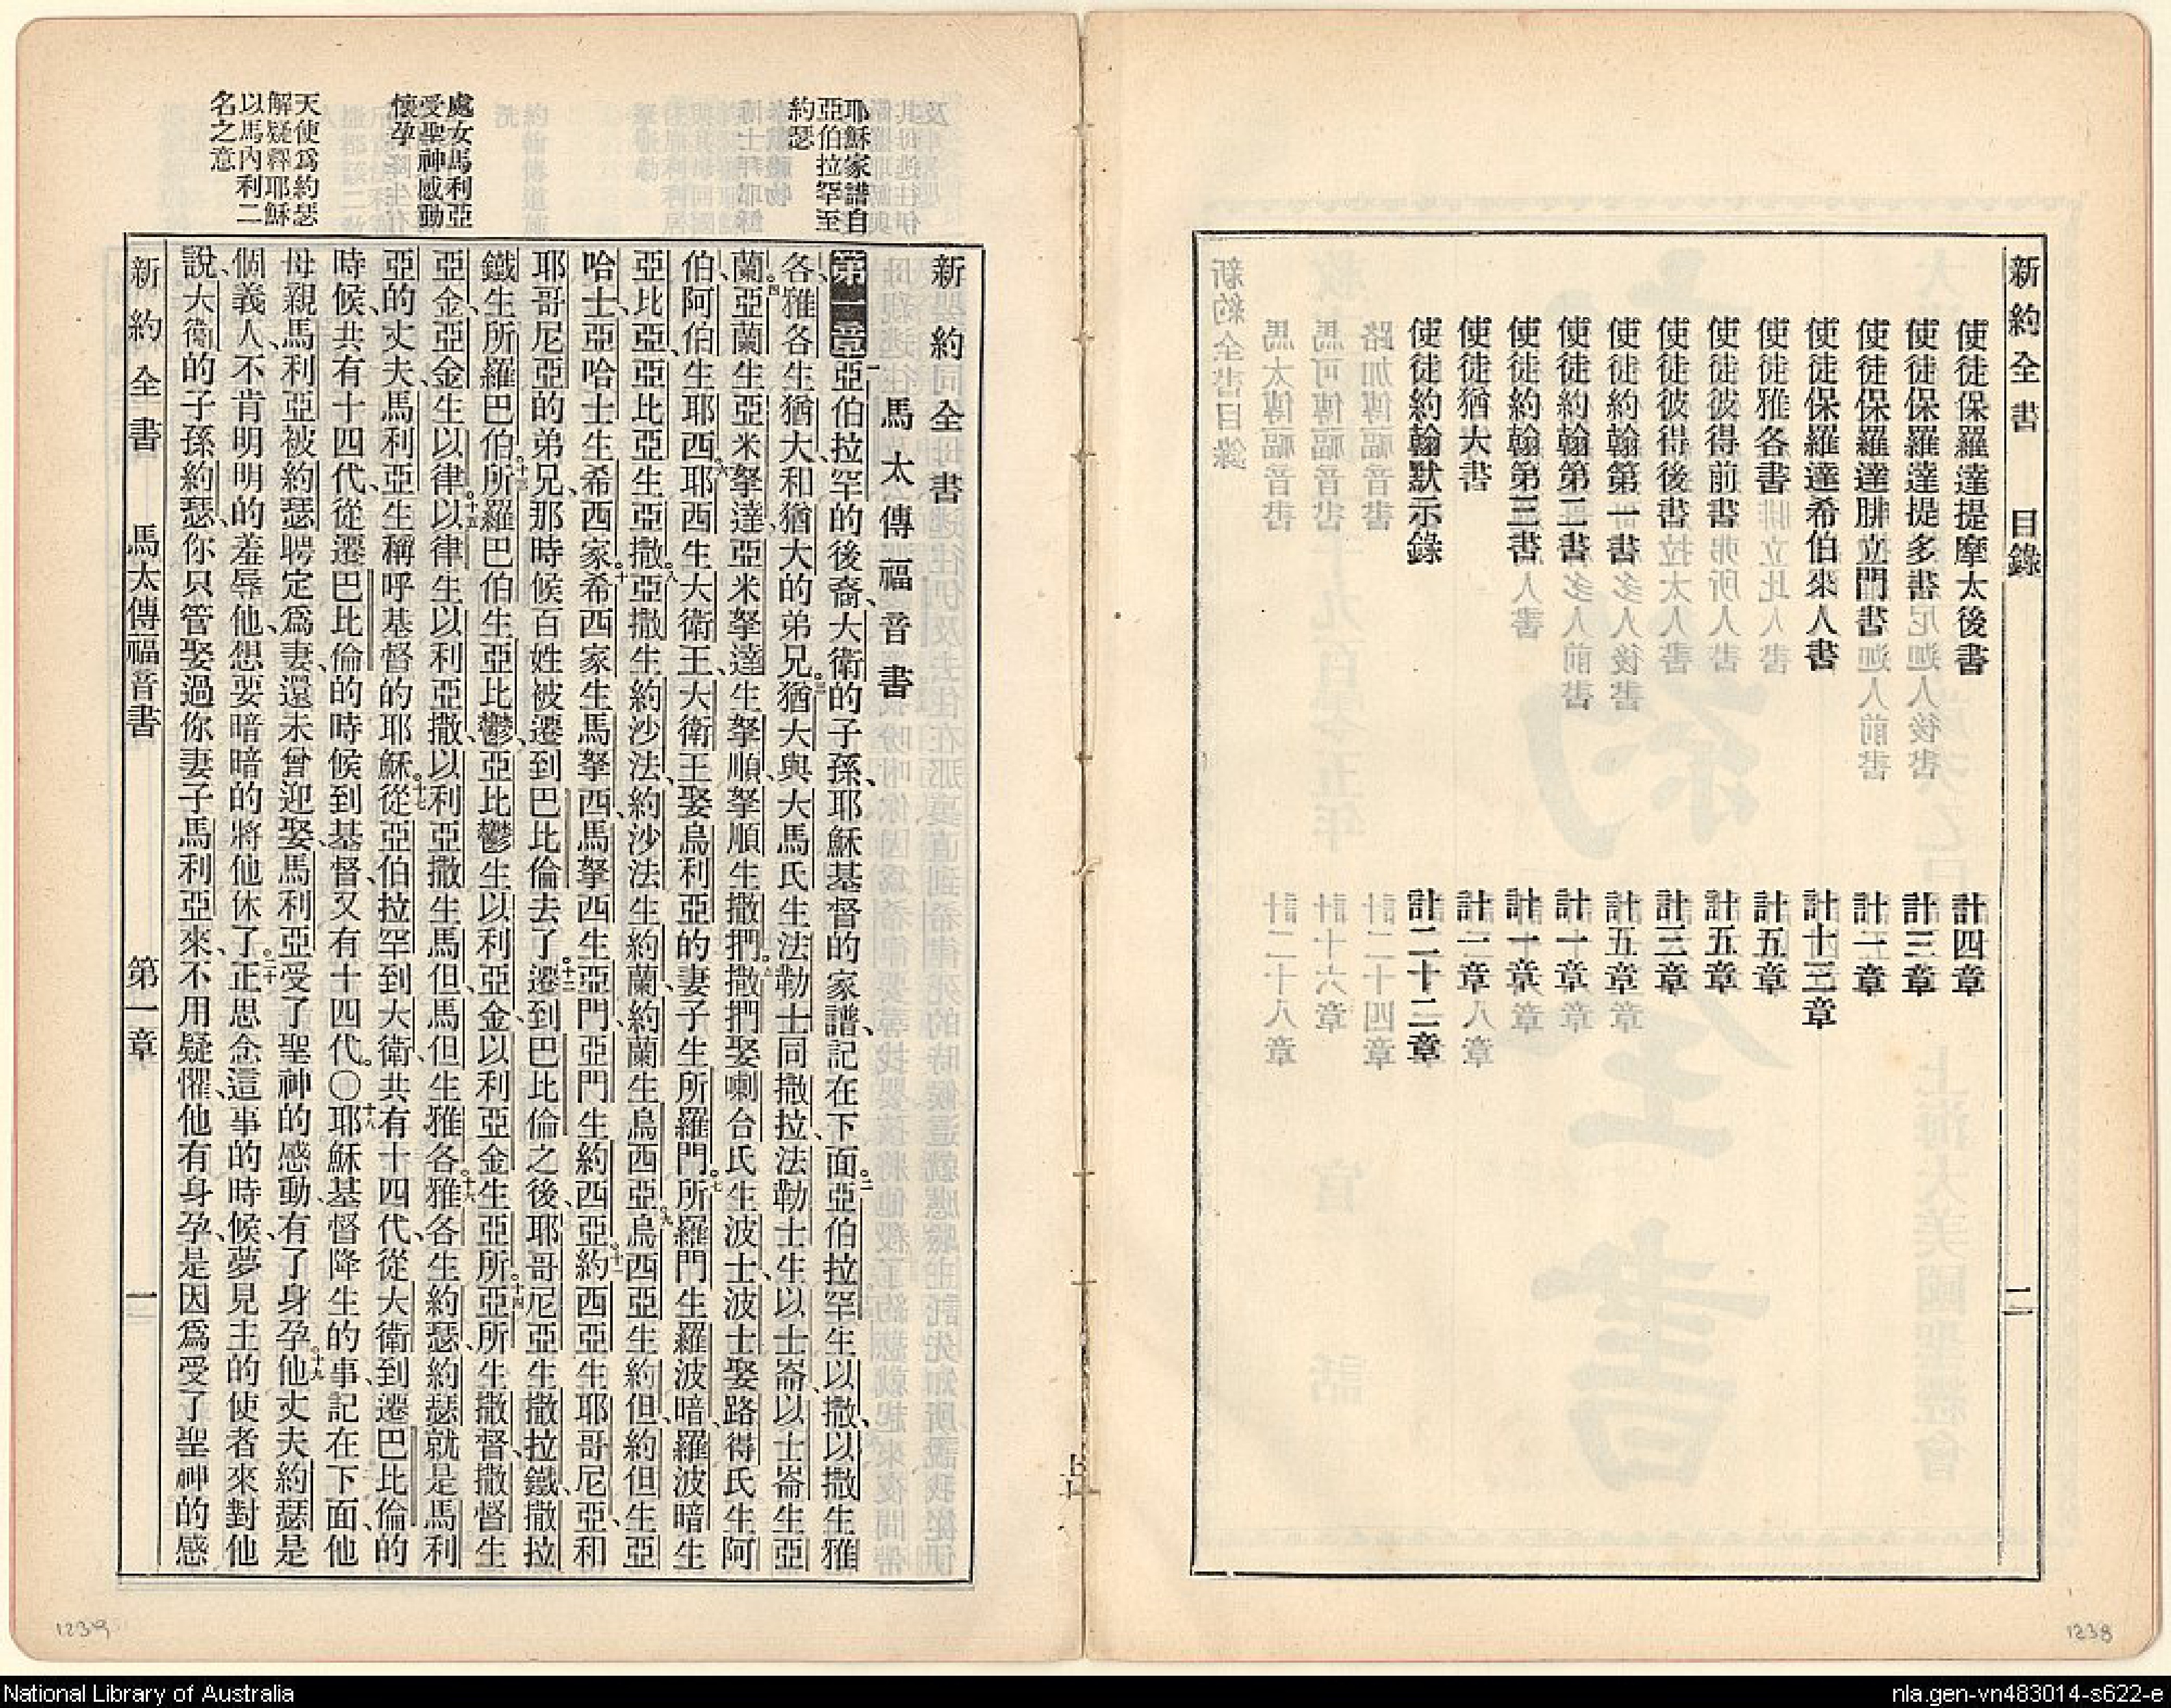 新約全書 目錄 二
使徒保羅達提摩太後書 計四章
使徒保羅達提多書 計三章
使徒保羅達腓立門書 計一章
使徒保羅達希伯來人書 計十三章
使徒雅各書 計五章
使徒彼得前書 計五章
使徒彼得後書 計三章
使徒約翰第一書 計五章
使徒約翰第二書 計一章
使徒約翰第三書 計一章
使徒猶大書 計一章
使徒約翰默示錄 計二十二章
1238
耶穌家譜自
亞伯拉罕至
約瑟
處女馬利亞
受聖神感動
懷孕
天使爲約瑟
解疑釋耶穌
以馬內利二
名之意
新約全書
馬太傳福音書
第一章一亞伯拉罕的後裔、大衛的子孫、耶穌基督的家譜、記在下面。二亞伯拉罕生以撒、以撒生雅
各、雅各生猶大和猶大的弟兄。三猶大與大馬氏生法勒士同撒拉、法勒士生以士崙、以士崙生亞
蘭。四亞蘭生亞米拏達、亞米拏達生拏順、拏順生撒捫。五撒捫娶喇合氏生波士、波士娶路得氏生阿
伯、阿伯生耶西。六耶西生大衛王、大衛王娶烏利亞的妻子生所羅門。七所羅門生羅波暗、羅波暗生
亞比亞、亞比亞生亞撒。八亞撒生約沙法、約沙法生約蘭、約蘭生烏西亞。九烏西亞生約但、約但生亞
哈士、亞哈士生希西家。十希西家生馬拏西、馬拏西生亞門、亞門生約西亞。十一約西亞生耶哥尼亞、和
耶哥尼亞的弟兄、那時候百姓被遷到巴比倫去了。十二遷到巴比倫之後、耶哥尼亞生撒拉鐵、撒拉
鐵生所羅巴伯。十三所羅巴伯生亞比鬱、亞比鬱生以利亞金、以利亞金生亞所。十四亞所生撒督、撒督生
亞金、亞金生以律。十五以律生以利亞撒、以利亞撒生馬但、馬但生雅各。十六雅各生約瑟、約瑟就是馬利
亞的丈夫、馬利亞生稱呼基督的耶穌。十七從亞伯拉罕到大衛共有十四代、從大衛到遷巴比倫的
時候、共有十四代、從遷巴比倫的時候到基督、又有十四代。○十八耶穌基督降生的事、記在下面、他
母親馬利亞被約瑟聘定爲妻、還未曾迎娶、馬利亞受了聖神的感動、有了身孕。十九他丈夫約瑟是
個義人、不肯明明的羞辱他、想要暗暗的將他休了。二十正思念這事的時候、夢見主的使者來對他
說、大衛的子孫約瑟、你只管娶過你妻子馬利亞來、不用疑懼、他有身孕、是因爲受了聖神的感
新約全書 馬太傳福音書 第一章 一
1239
National Library of Australia
nla.gen-vn483014-s622-e